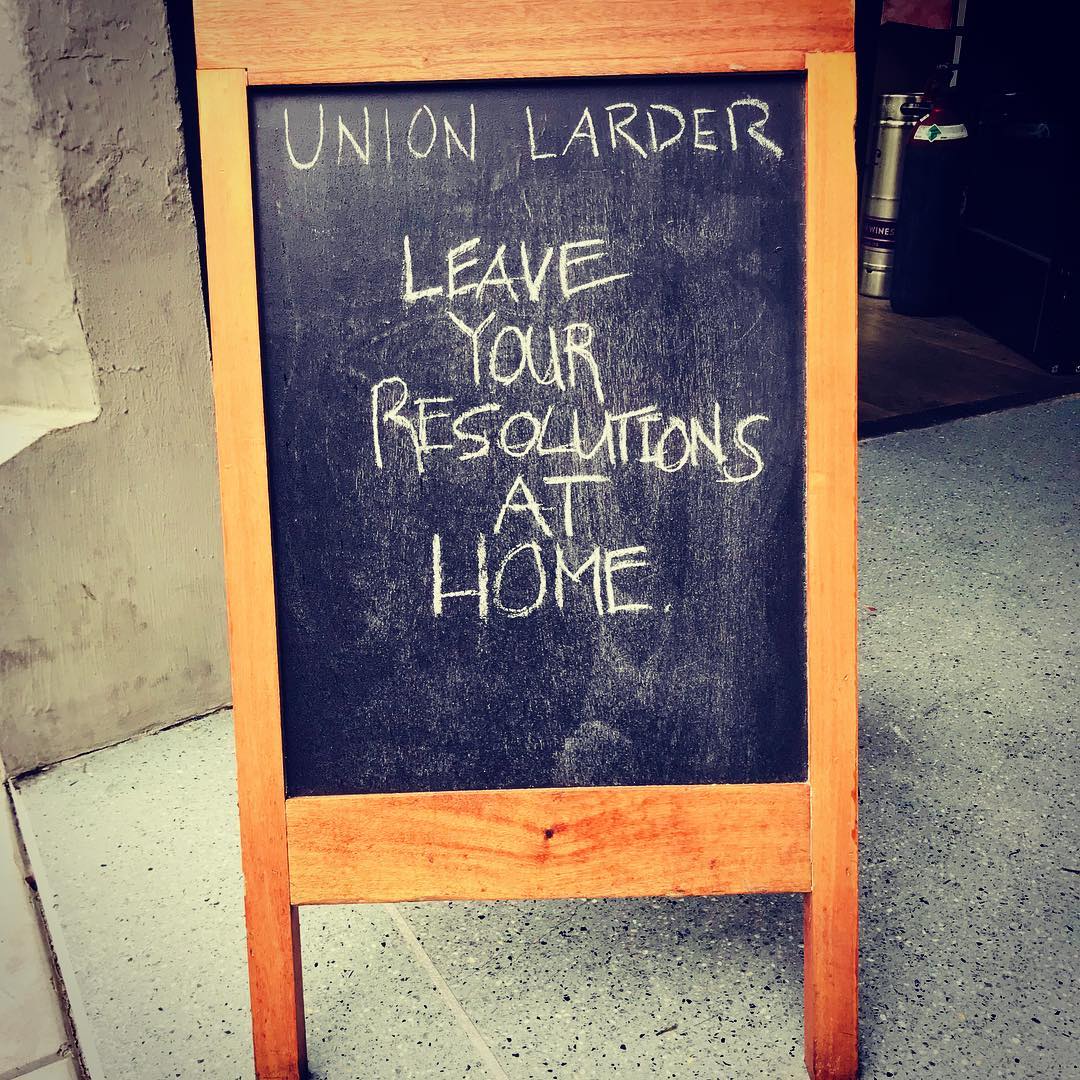 UNION LARDER
LEAVE
YOUR
RESOLUTIONS
AT
HOME.
WINES